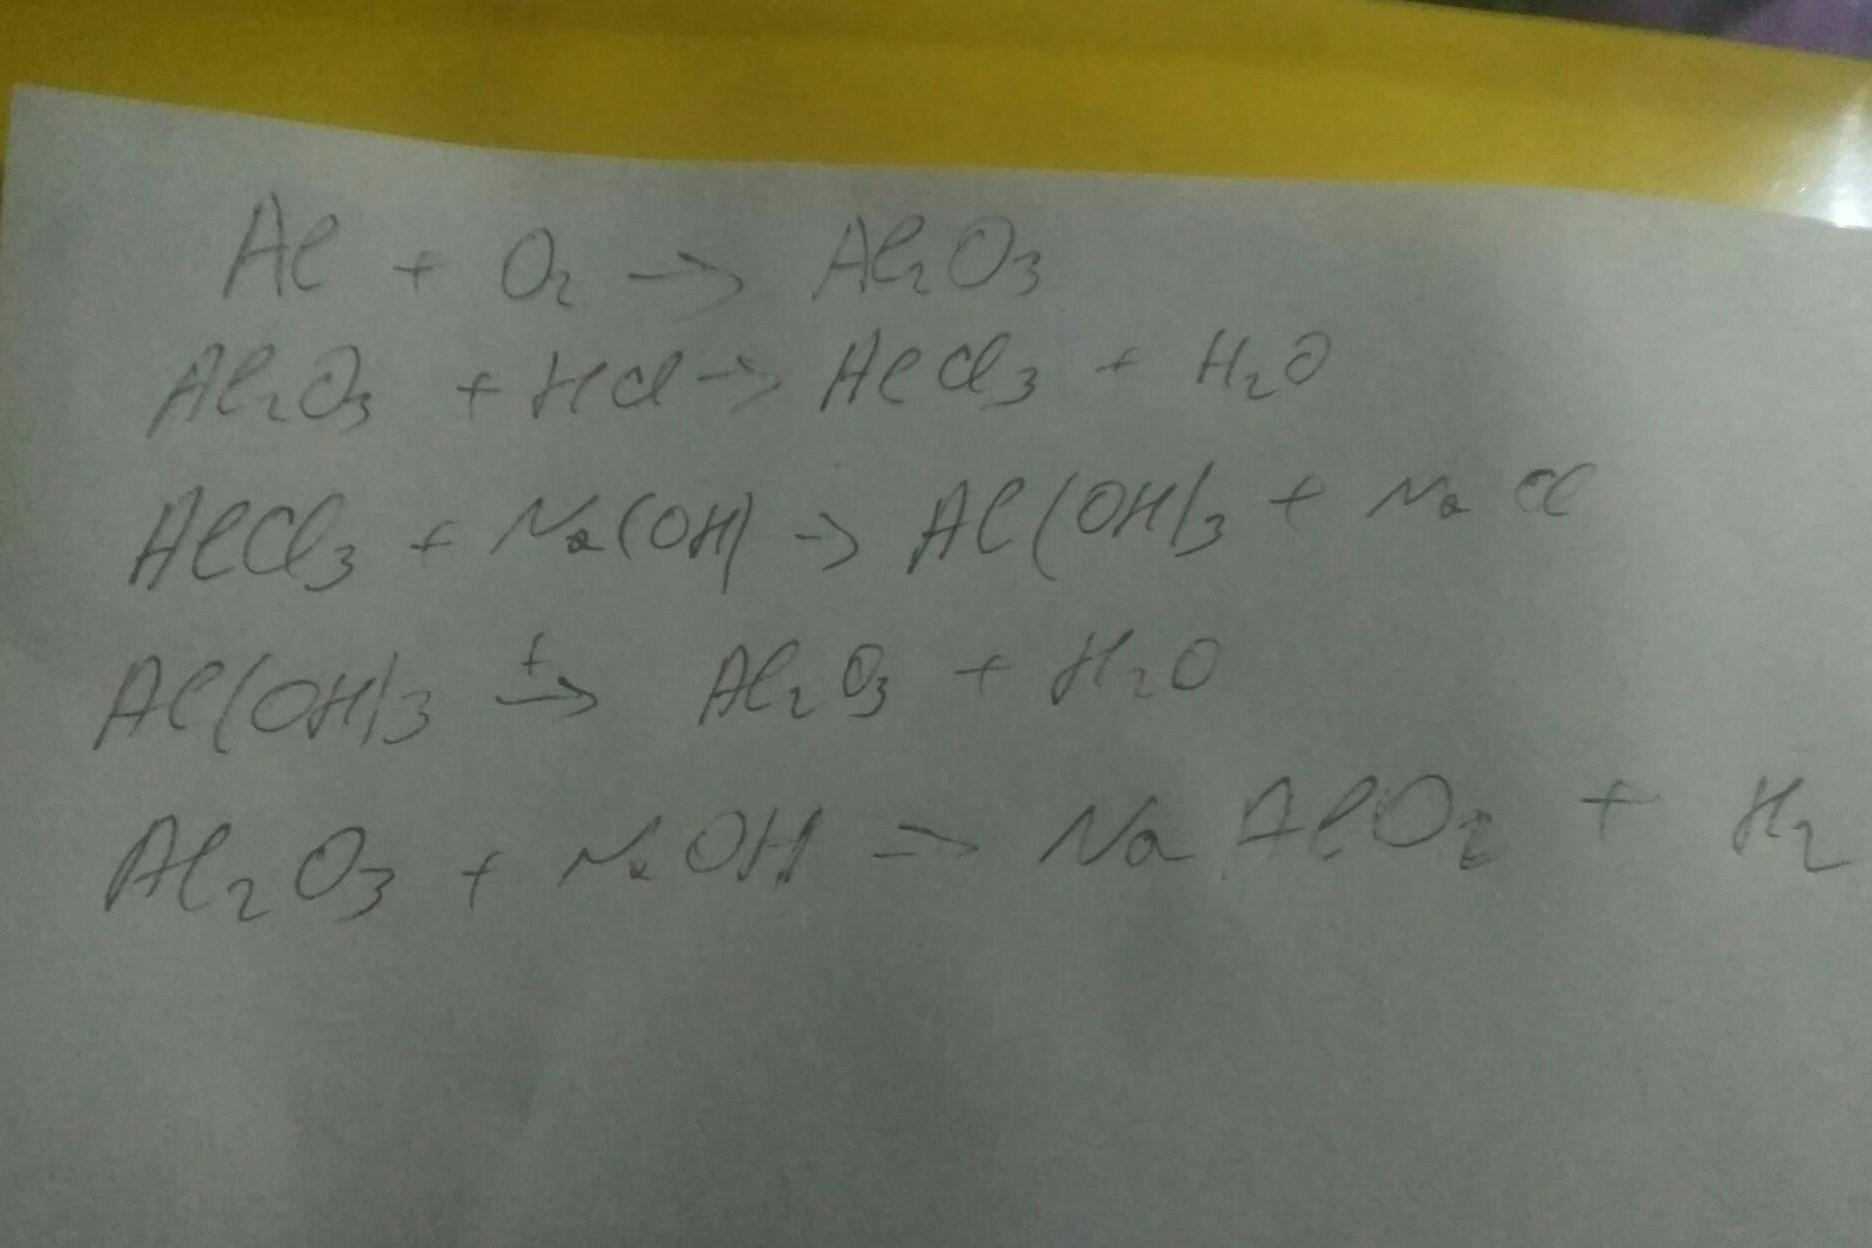 Al + O₂ → Al₂O₃
Al₂O₃ + HCl → AlCl₃ + H₂O
AlCl₃ + Na(OH) → Al(OH)₃ + NaCl
Al(OH)₃ →ᵗ Al₂O₃ + H₂O
Al₂O₃ + NaOH → NaAlO₂ + H₂